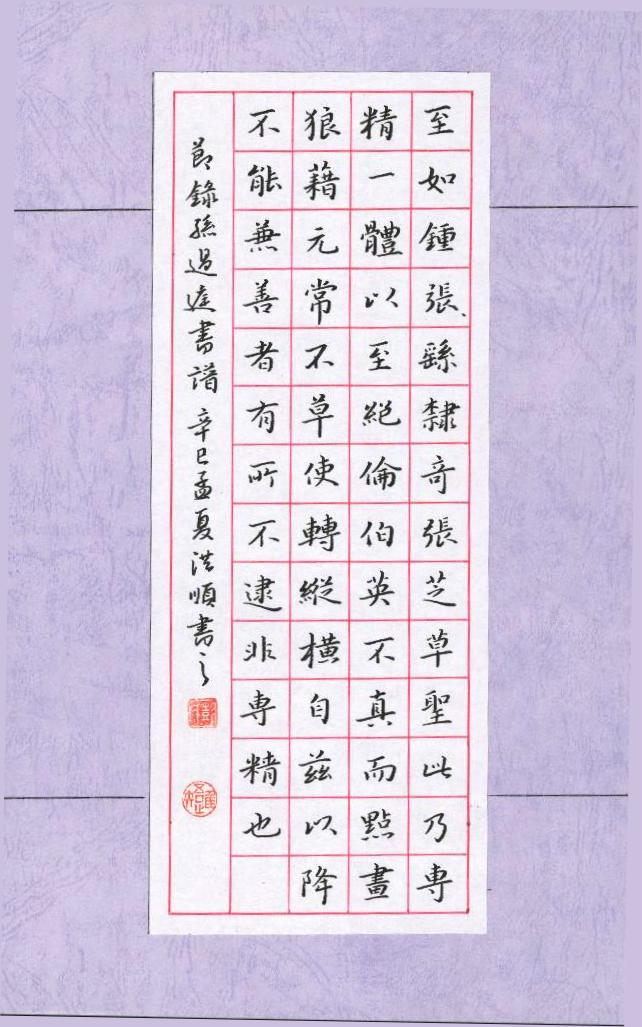 至如鍾張、繇隸奇張芝草聖此乃専
精一體以至絕倫伯英不真而點畫
狼藉元常不草使轉縱橫自茲以降
不能兼善者有所不逮非専精也
節錄孫過庭書譜 辛巳孟夏洪順書之